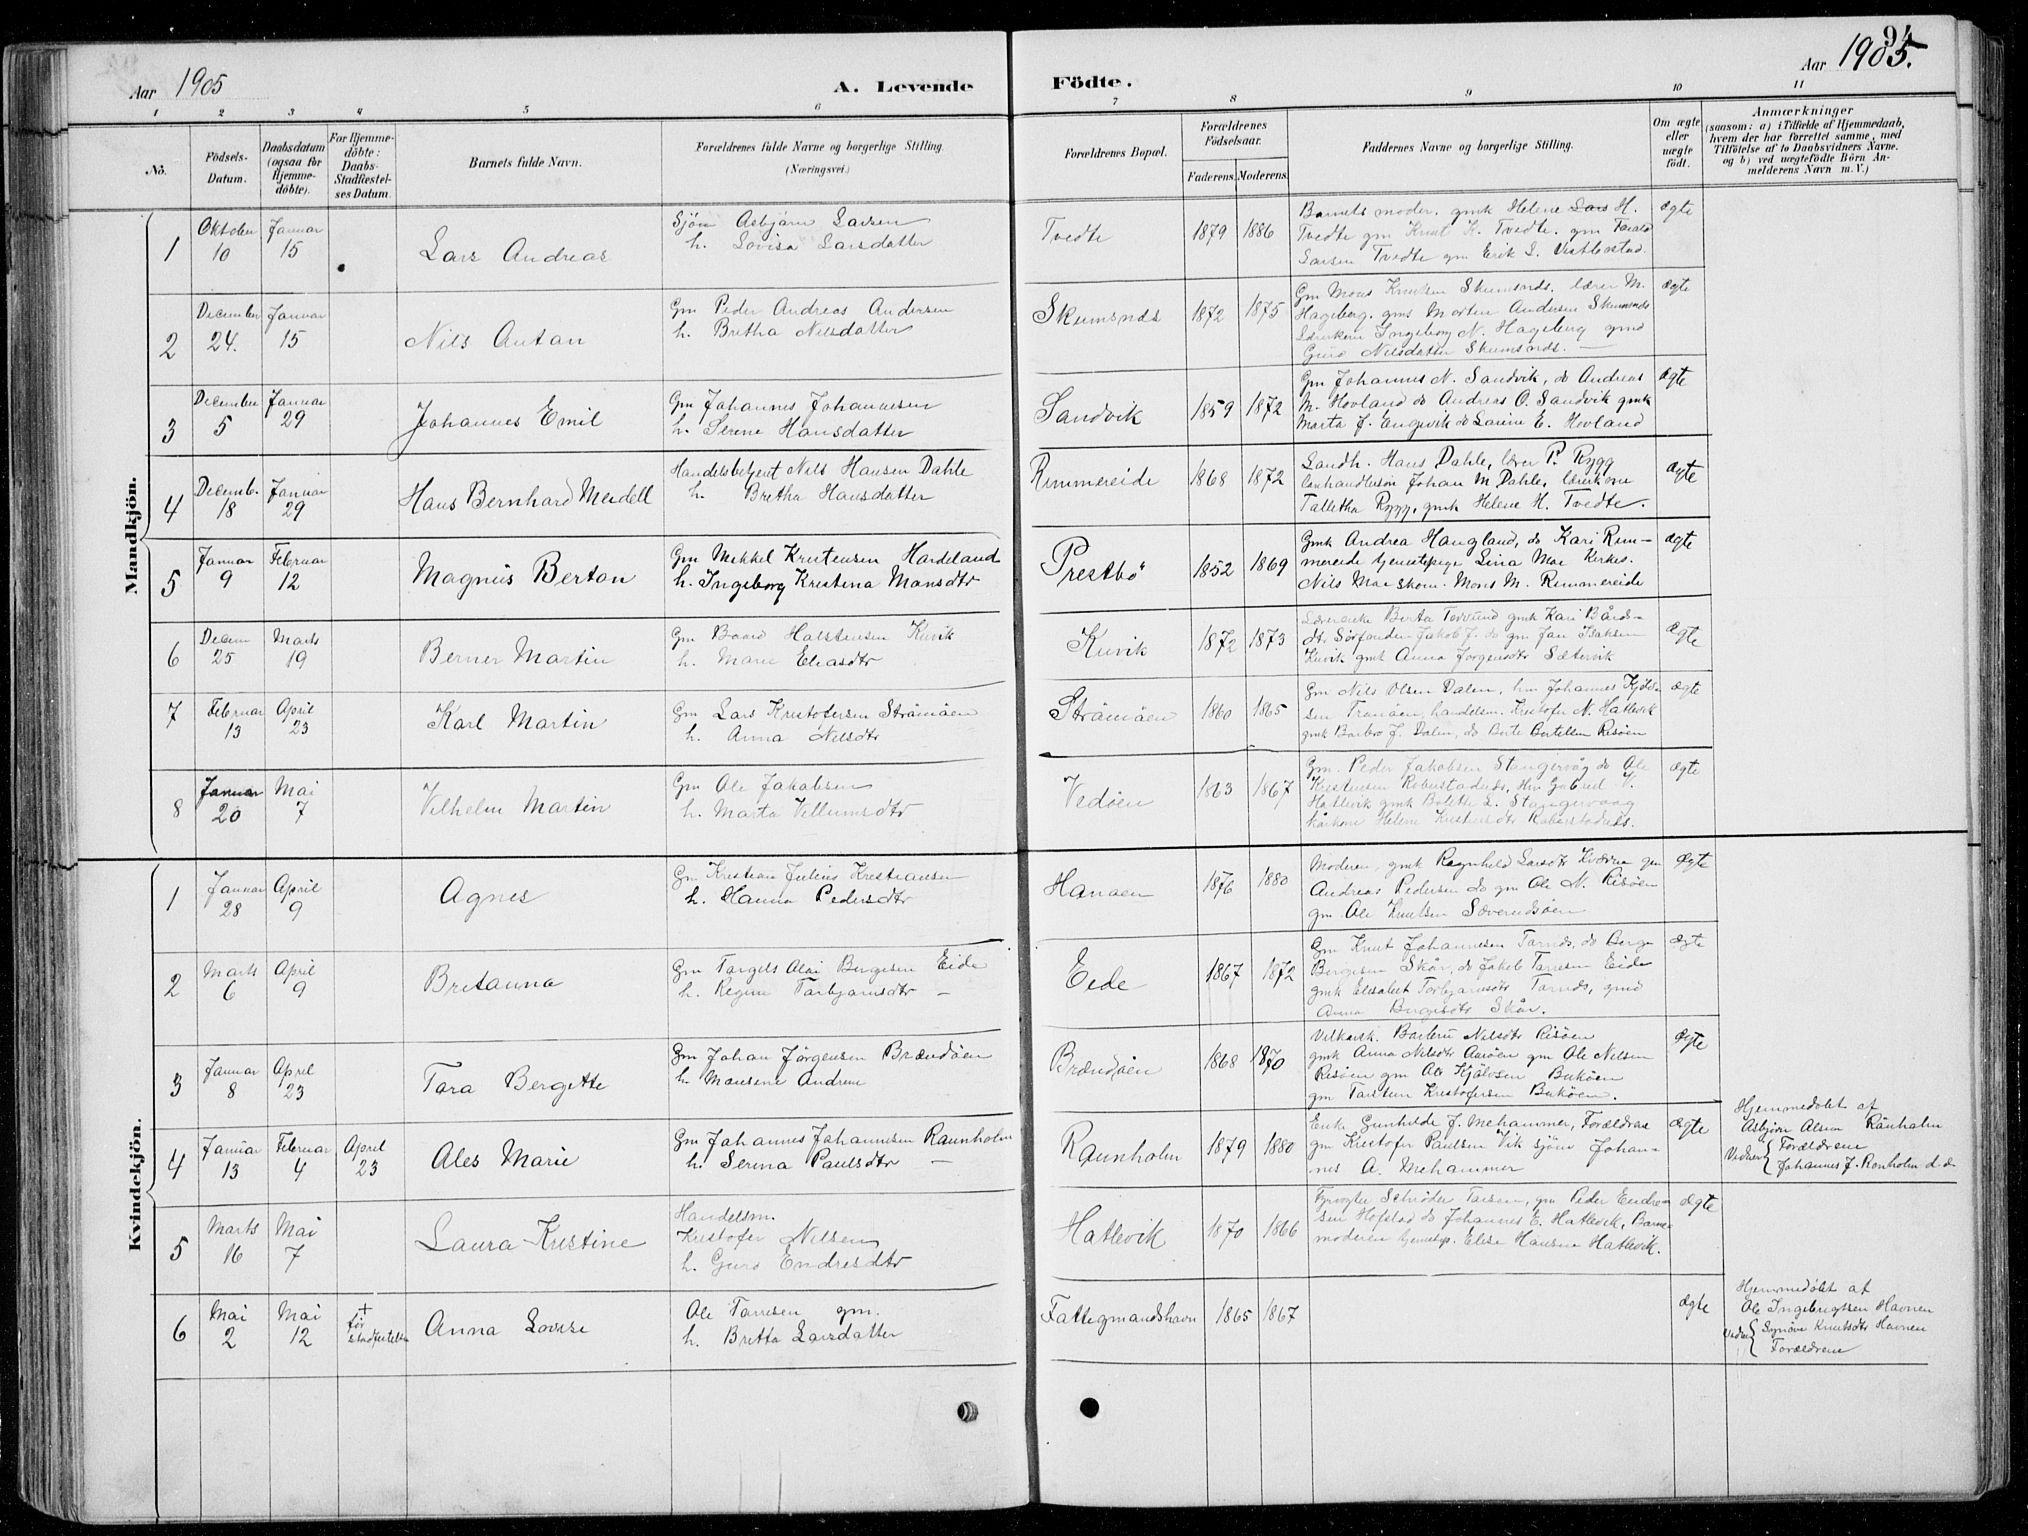 94
Aar 1905
A. Levende Födte.
Aar 1905.
1 2 3 4 5 6 7 8 9 10 11
No.
Födsels-Datum.
Daabsdatum (ogsaa for Hjemmedöbte).
For Hjemmedöbte: Daabs-Stadfæstelses Datum.
Barnets fulde Navn.
Forældrenes fulde Navne og borgerlige Stilling.
(Næringsvei.)
Forældrenes Bopæl.
Forældrenes Födselsaar.
Faderens. Moderens.
Faddernes Navne og borgerlige Stilling.
Om ægte eller uægte födt.
Anmærkninger
(saasom: a) i Tilfælde af Hjemmedaab,
hvem der har forrettet samme, med
Tilföielse af to Daabsvidners Navne.
og b) ved uægtefödte Börn Anmelderens Navn m. V.)
Mandkjön.
1 Oktober 10 Januar 15 Lars Andreas
Sjöm Asbjörn Larsen
h. Lovisa Larsdatter
Tvedte 1879 1886
Barnets moder, gmk Helene Lars H.
Tvedte gm Knut K. Tvedte. gm
Larsen Tvedte gm Erik L.
ægte
2 December 24. Januar 15 Nils Antan
Gm Peder Andreas Andersen
h. Bretha Nilsdatter
Skumsnds 1872 1875
Gm Mons Knutsen Skumsnds. lærer M.
Hageberg. gms Morten Andersen Skumsnds
Ingeborg N. Hageberg gmd
Guro Nilsdatter Skumsnds.
ægte
3 December 5 Januar 29 Johannes Emil
Gm Johannes Johannesen
h. Serine Hansdatter
Sandvik 1859 1872
Gm Johannes N. Sandvik, do Andreas
M. Hovland do Andreas O. Sandvik gmk
Marta J. Engevik do Lavine E. Hovland
ægte
4 Decemb. 18 Januar 29 Hans Bernhard Meidell
Handelsbetjent Nils Hansen Dahle
h. Bretha Hansdatter
Rimmereide 1868 1872
Landh. Hans Dahle, lærer P. Rygg
Johan M Dahle, lærerkone
Talletha Rygg, gmk Helene H. Tvedte.
ægte
5 Januar 9 Februar 12 Magnus Bertan
Gm Mikkel Kristensen Hardeland
h. Ingeborg Kristina Mansdtr
Prestbö 1852 1869
Gmk Andrea Haugland, do Kari Rimmereide
tjenestepige Lina Moe Kirkes.
Nils Moe skom. Mons M. Rimmereide
ægte
6 Decem 25 Marts 19 Berner Martin
Gm Baard Halstensen Kuvik
h. Marie Eliasdtr
Kuvik 1872 1873
Berta gmk Kari Bårdsdtr
Jakob J. do gm Jan Isaksen
Kuvik gmk Anna Jorgensdtr Sætervik
ægte
7 Februar 13 April 23 Karl Martin
Gm Lars Kristofersen Strömöen
h. Anna Nilsdtr
Strömöen 1860 1865
Gm Nils Olsen Dalen, hm Johannes
handelsm. Kristofer N. Hatlevik
gmk Barbro J. Dalen, do Berte Bertelsen Risöen
ægte
8 Januar 20 Mai 7 Vilhelm Martin
Gm Ole Jakobsen
h. Marta Villumsdtr
Vedöen 1863 1867
Gm. Peder Jakobsen Stangervåg do Ole
Kristensen Hm Gabriel V.
Hatlevik gmk Bolette L. Stangervaag
Helene Kristensdtr
ægte
Kvindekjön.
1 Januar 28 April 9 Agnes
Gm Kristian Julius Kristiansen
h. Hanna Pedersdtr
Hanöen 1876 1880
Moderen, gmk Ragnhild Larsdtr gm
Andreas Pedersen do gm Ole N. Risöen
gm. Ole Knutsen Sæverudsöen
ægte
2 Marts 6 April 9 Britanna
Gm Targels Olai Bergesen Eide
h. Regine Tarbjörnsdtr
Eide 1867 1872
Gm Knut Johannesen Tarnds, do Berge
Bergesen Skår, do Jakob Tarresen Eide
gmk Elisabet Torbjørnsdtr Tarnds, gmd
Anna Bergesdtr Skår.
ægte
3 Januar 8 April 23 Tara Bergitte
Gm Johan Jörgensen Brændöen
h. Mansine Andrine
Brændöen 1868 1870
Nilsdtr Risöen
gmk Anna Nilsdtr Aasöen gm Ole Nilsen
Risöen gm Ole Kjölvsen Buköen
gm Tarstein Kristofersen Buköen.
ægte
4 Januar 13 Februar 4 April 23 Ales Marie
Gm Johannes Johannesen Raunholm
h. Serina Paulsdtr
Raunholm 1879 1880
Enke Gunhilde J. Mehammer, Forældrene
gm Kristofer Paulsen Vik sjöm Johannes
A. Mehammer
ægte
Hjemmedöbt af
Asbjörn Olsen Raunholm
Vidner Forældrene
Johannes J. Ronholm d.e.
5 Marts 16 Mai 7 Laura Kristine
Handelsm.
Kristofer Nilsen
h. Guro Endresdtr
Hatlevik 1870 1866
Fyrvogter Schröder Tarsen, gm Peder Endresen
Hofstad do Johannes E. Hatlevik, Barnemoderen
tjenestep. Elise Hansen Hatlevik.
ægte
6 Mai 2 Mai 12 + för stadfestelsen Anna Lovise
Ole Tarresen gm.
h. Britta Larsdatter
Fattigmandshavn 1865 1867
ægte
Hjemmedöbt af
Ole Ingebrigtsen Havnen
Vidner Synöve Knutsdtr Havnen
Forældrene